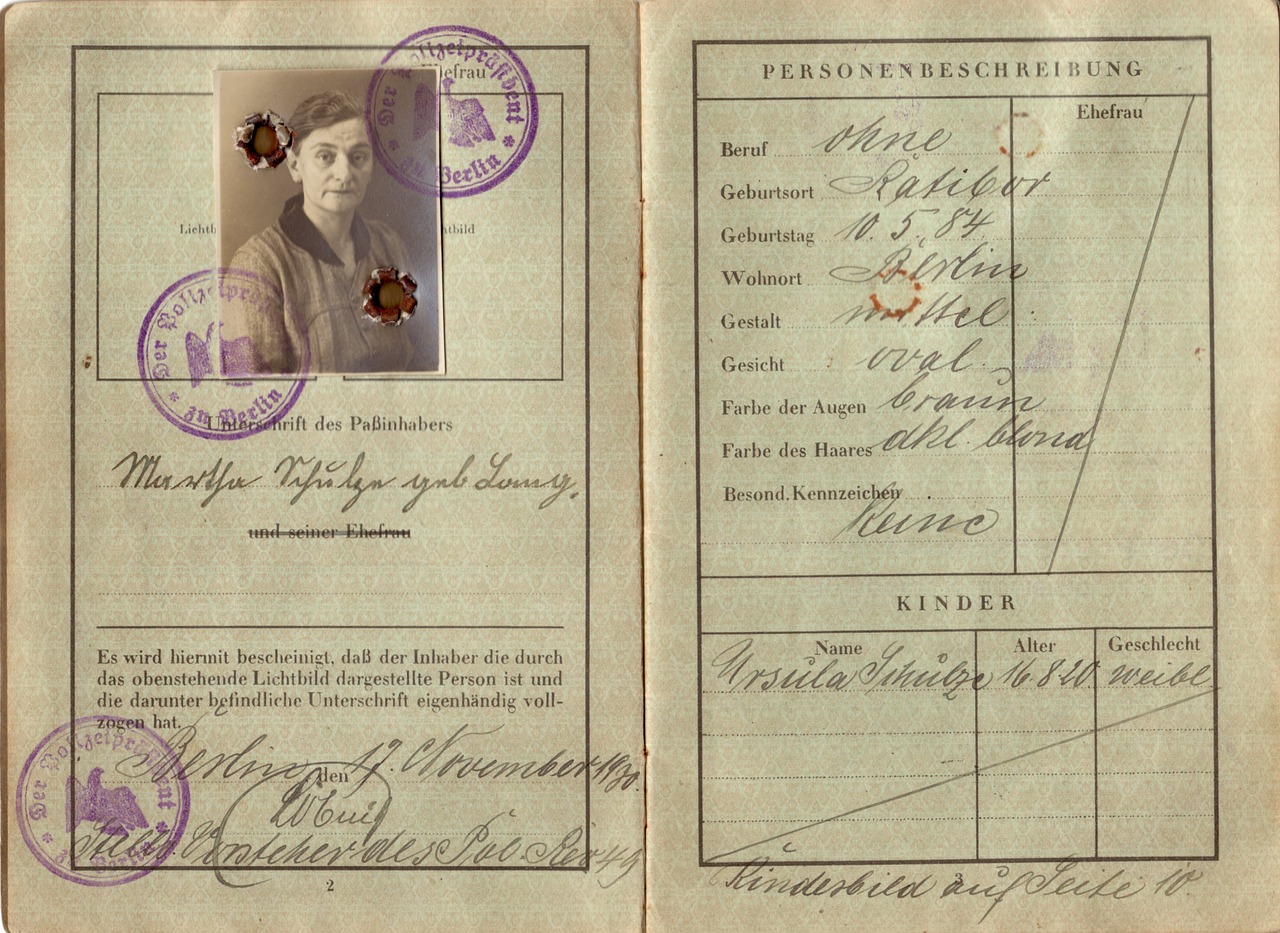 Ehefrau
Der Polizeipräsident
zu Berlin
Lichtb
htbild
Der Polizeipräs
zu Berlin
Unterschrift des Paßinhabers
Martha Schulze geb. Lang.
und seiner Ehefrau
Es wird hiermit bescheinigt, daß der Inhaber die durch
das obenstehende Lichtbild dargestellte Person ist und
die darunter befindliche Unterschrift eigenhändig voll-
zogen hat.
Berlin, den 17. November 1930.
Der Polizeipräsident
zu Berlin
Stellv. Vorsteher des Pol. Rev 49
2
PERSONENBESCHREIBUNG
Ehefrau
Beruf ohne
Geburtsort Ratibor
Geburtstag 10. 5. 84
Wohnort Berlin
Gestalt mittel
Gesicht oval
Farbe der Augen braun
Farbe des Haares dkl. blond
Besond. Kennzeichen
keine
KINDER
Name Alter Geschlecht
Ursula Schulze 16.8.20. weibl.
3
Kindesbild auf Seite 10.